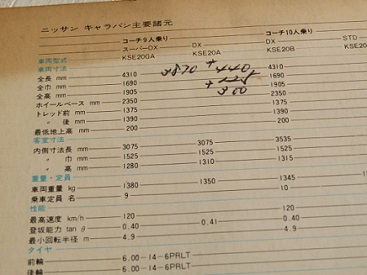 ニッサン キャラバン主要諸元
コーチ9人乗り コーチ10人乗り
スーパーDX DX DX STD
車両型式 KSE20GA KSE20A KSE20B KSE
車両寸法
全長 mm 4310 4310
全巾 mm 1690 1690
全高 mm 1905 1905
ホイールベース mm 2350 2350
トレッド前 mm 1375 1375
〃 後 mm 1390 1390
最低地上高 mm 200 200
客室寸法
内側寸法長 mm 3075 3075 3535
〃 巾 mm 1525 1525 1525
〃 高 mm 1280 1310 1315
重量・定員
車両重量 kg 1380 1350 1345
乗車定員 名 9 10
性能
最高速度 km/h 120 120
登坂能力 tan θ 0.40 0.41 0.40
最小回転半径 m 4.9 4.9
タイヤ
前輪 6.00-14-6PRLT
後輪 6.00-14-6PRLT